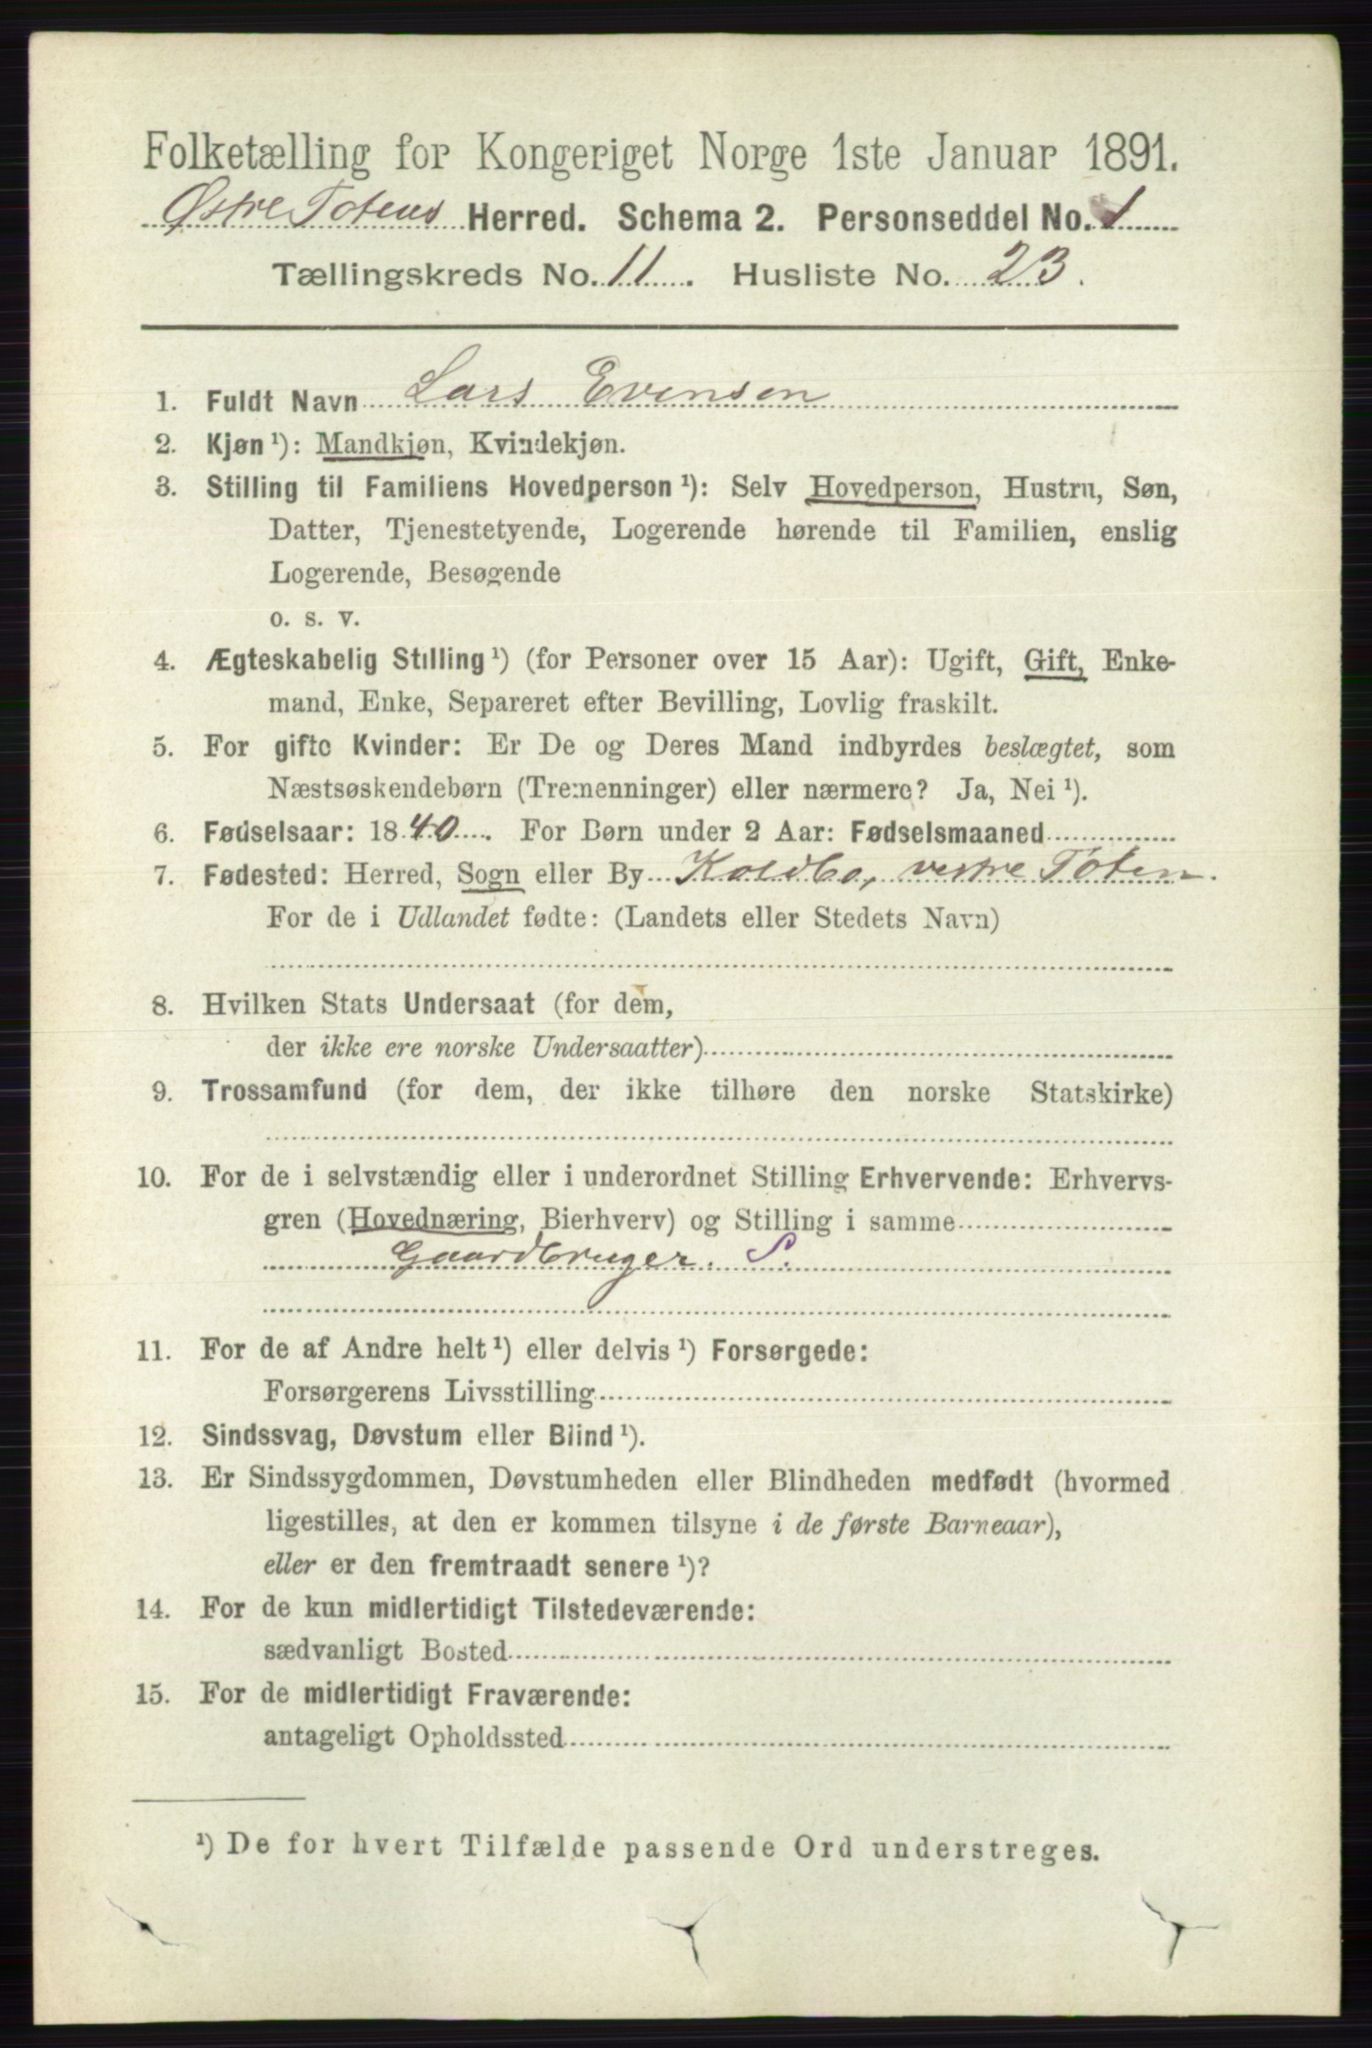 Folketælling for Kongeriget Norge 1ste Januar 1891.
Østre Totens Herred. Schema 2. Personseddel No. 1
Tællingskreds No. 11. Husliste No. 23.
1. Fuldt Navn Lars Evensen
2. Kjøn ¹): Mandkjøn, Kvindekjøn.
3. Stilling til Familiens Hovedperson ¹): Selv Hovedperson, Hustru, Søn,
Datter, Tjenestetyende, Logerende hørende til Familien, enslig
Logerende, Besøgende
o. s. v.
4. Ægteskabelig Stilling ¹) (for Personer over 15 Aar): Ugift, Gift, Enke-
mand, Enke, Separeret efter Bevilling, Lovlig fraskilt.
5. For gifte Kvinder: Er De og Deres Mand indbyrdes beslægtet, som
Næstsøskendebørn (Tremenninger) eller nærmere? Ja, Nei ¹).
6. Fødselsaar: 1840. For Børn under 2 Aar: Fødselsmaaned
7. Fødested: Herred, Sogn eller By Koldbo, vestre Toten.
For de i Udlandet fødte: (Landets eller Stedets Navn)
8. Hvilken Stats Undersaat (for dem,
der ikke ere norske Undersaatter)
9. Trossamfund (for dem, der ikke tilhøre den norske Statskirke)
10. For de i selvstændig eller i underordnet Stilling Erhvervende: Erhvervs-
gren (Hovednæring, Bierhverv) og Stilling i samme
Gaardbruger. S.
11. For de af Andre helt ¹) eller delvis ¹) Forsørgede:
Forsørgerens Livsstilling
12. Sindssvag, Døvstum eller Blind ¹).
13. Er Sindssygdommen, Døvstumheden eller Blindheden medfødt (hvormed
ligestilles, at den er kommen tilsyne i de første Barneaar),
eller er den fremtraadt senere ¹)?
14. For de kun midlertidigt Tilstedeværende:
sædvanligt Bosted
15. For de midlertidigt Fraværende:
antageligt Opholdssted
¹) De for hvert Tilfælde passende Ord understreges.